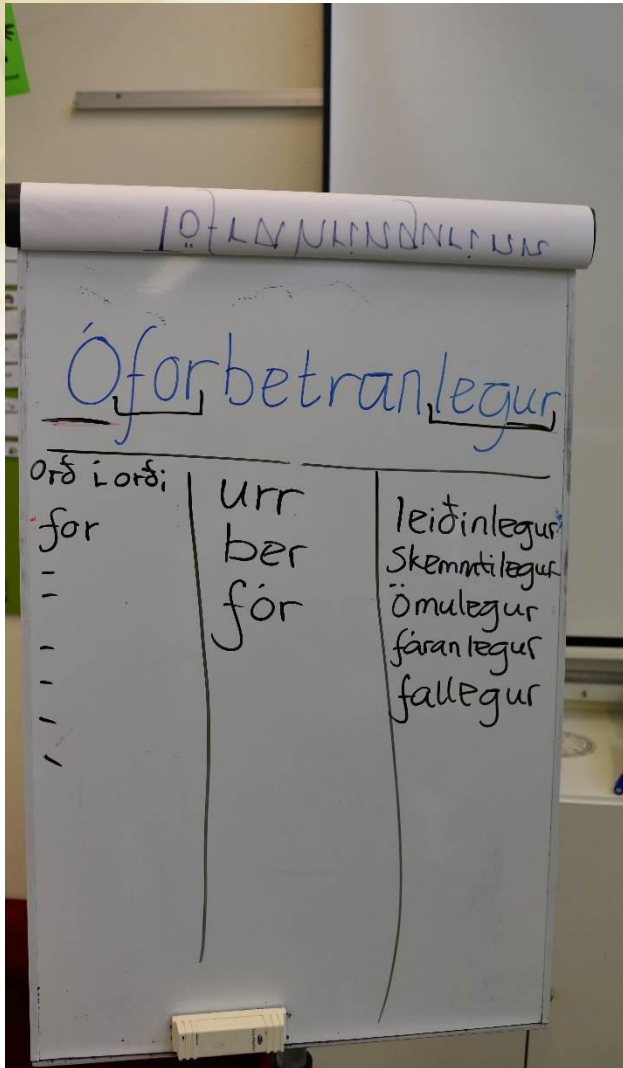 Óforbetranlegur
orð í orði
for
urr
ber
fór
leiðinlegur
skemmtilegur
ömulegur
fáranlegur
fallegur